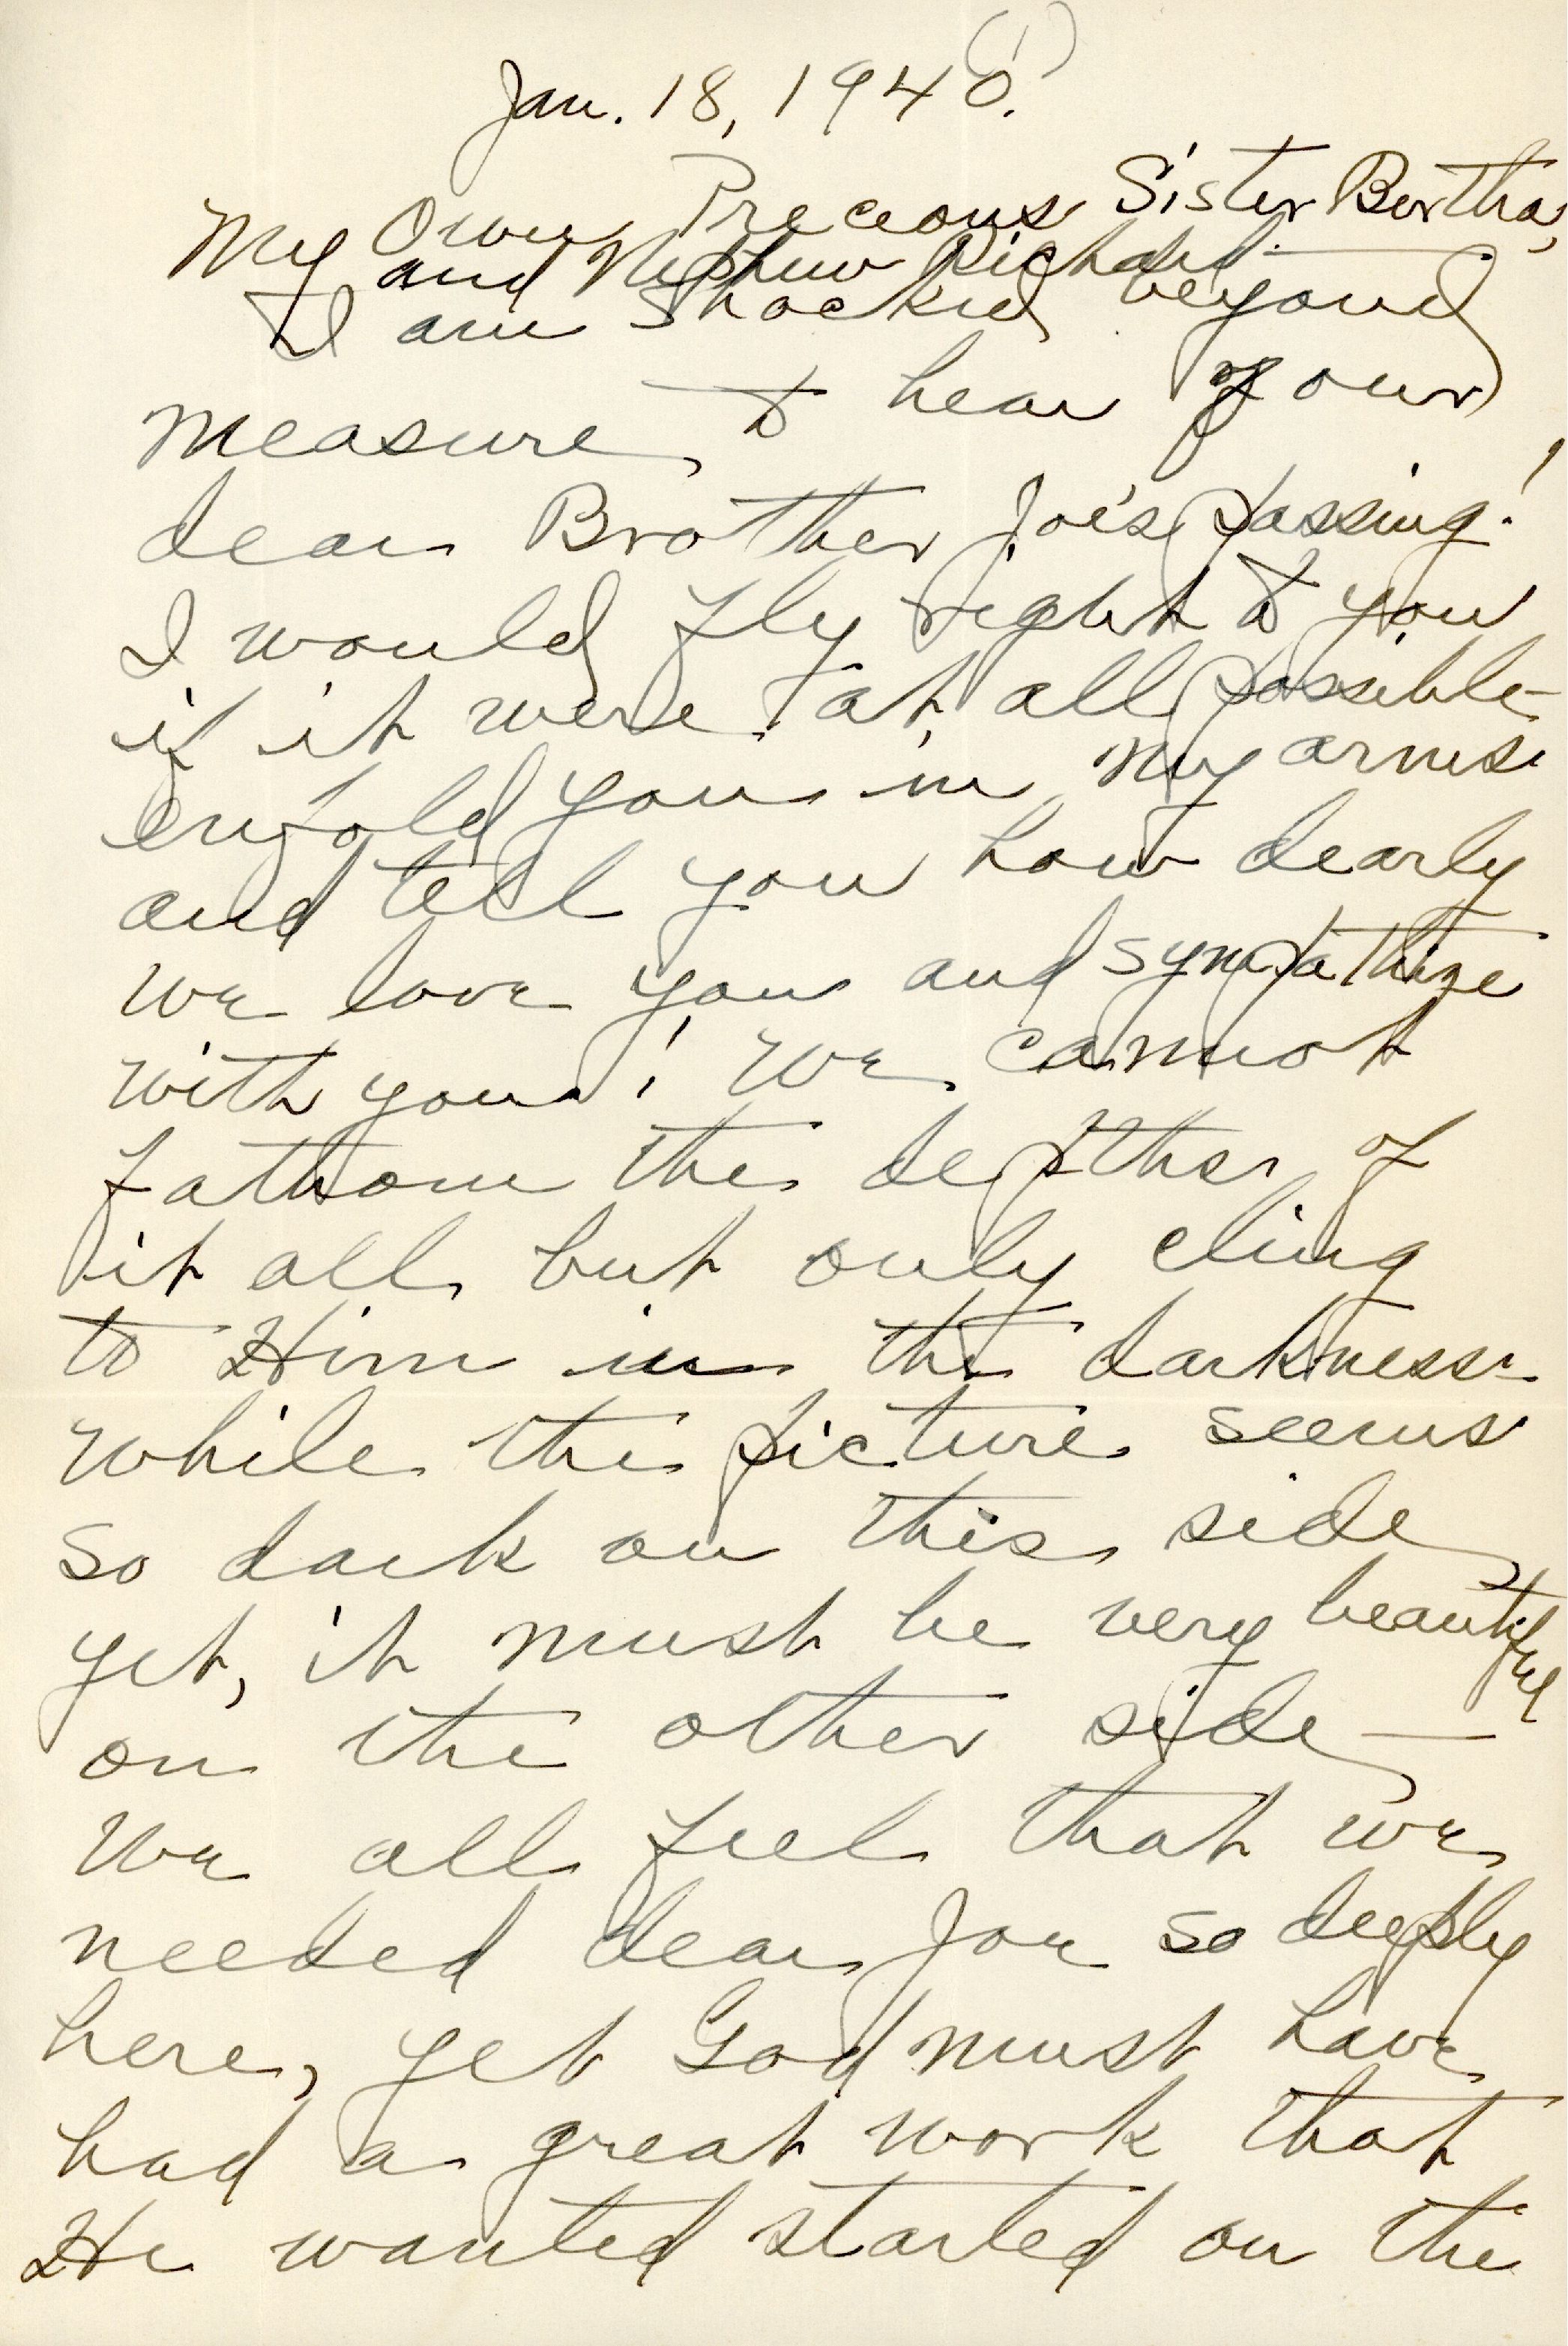 (1)
Jan. 18, 1940.
My Own Precious Sister Bertha,
and Nephew Richard:
I am shocked beyond
measure to hear of our
dear Brother Joe's passing!
I would fly right to you
if it were at all possible—
enfold you in my arms
and tell you how dearly
we love you and sympathize
with you! We cannot
fathom the depths of
it all but only cling
to Him in the darkness—
While the picture seems
so dark on this side,
yet, it must be very beautiful
on the other side—
We all feel that we
needed dear Joe so deeply
here, yet God must have
had a great work that
He wanted started on the